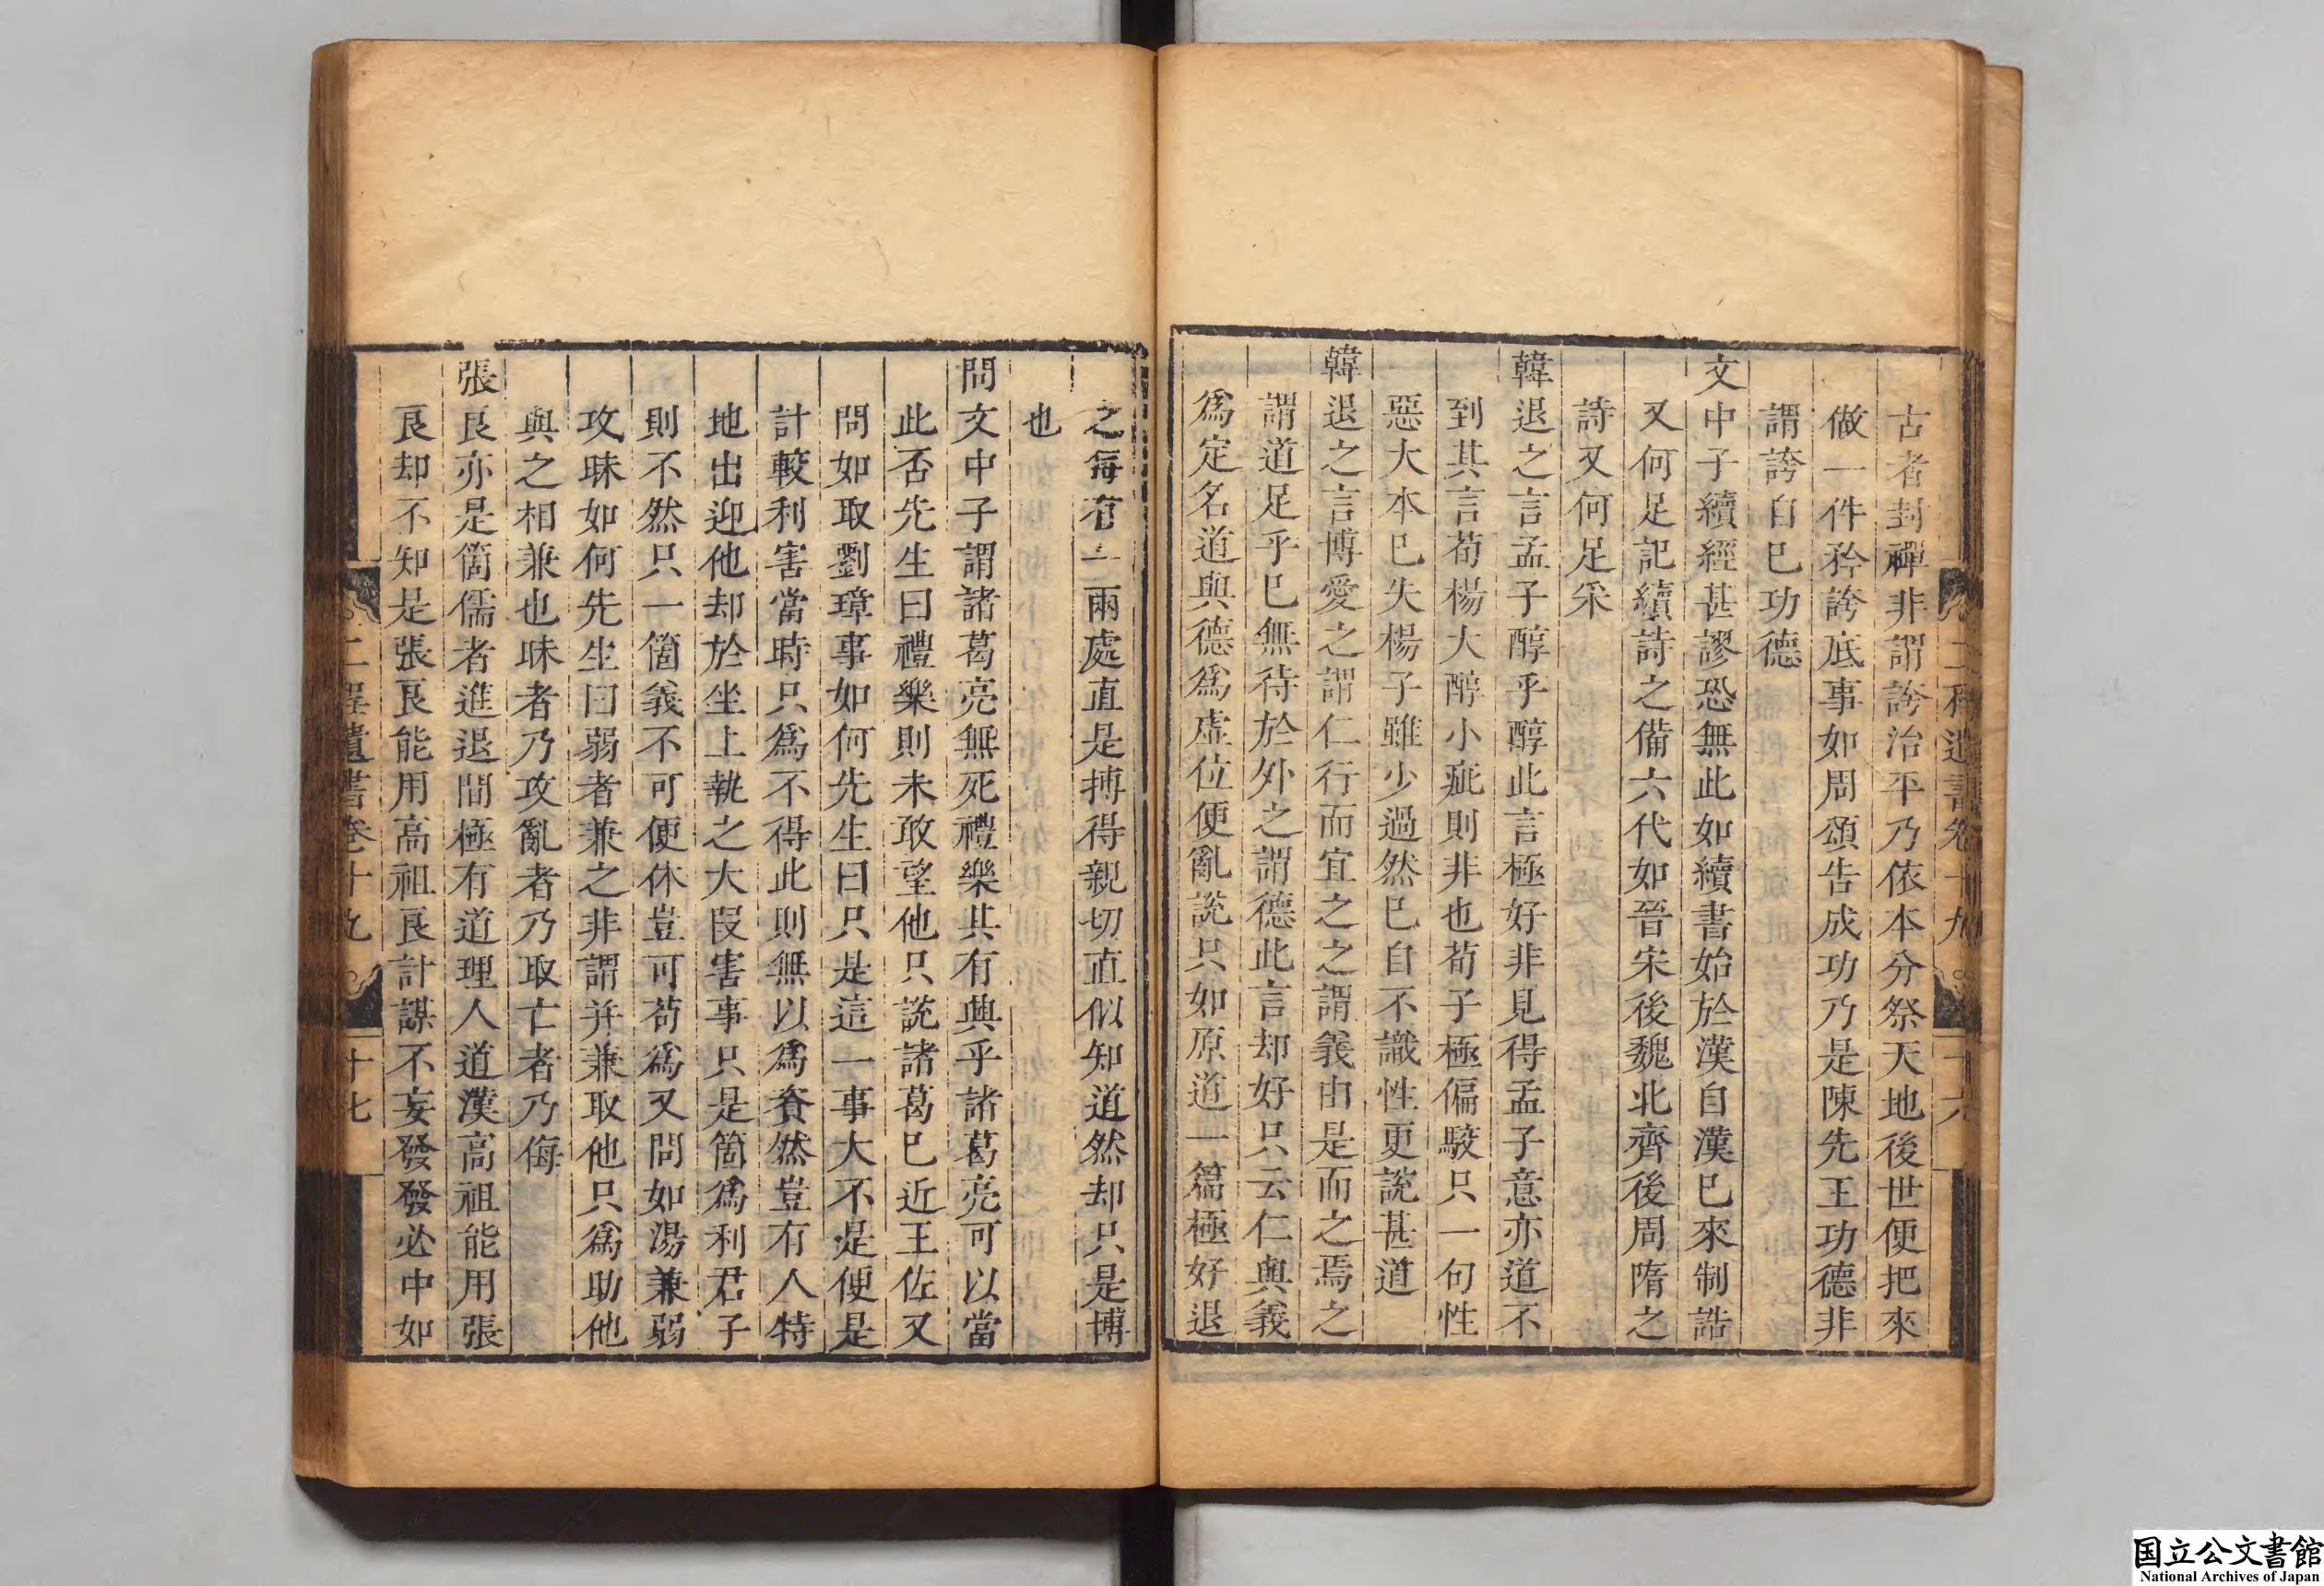 古者封禪非謂誇治平乃依本分祭天地後世便把來
做一件矜誇底事如周頌告成功乃是陳先王功德非
謂誇自已功德
文中子續經甚謬恐無此如續書始於漢自漢已來制誥
又何足記續詩之備六代如晉宋後魏北齊後周隋之
詩又何足采
韓退之言孟子醇乎醇此言極好非見得孟子意亦道不
到其言荀楊大醇小疵則非也荀子極偏駁只一句性
惡大本已失楊子雖少過然已自不識性更説甚道
韓退之言博愛之謂仁行而宜之之謂義由是而之焉之
謂道足乎已無待於外之謂德此言却好只云仁與義
爲定名道與德爲虚位便亂説只如原道一篇極好退
之每有一兩處直是搏得親切直似知道然却只是博
也
問文中子謂諸葛亮無死禮樂其有興乎諸葛亮可以當
此否先生曰禮樂則未敢望他只説諸葛已近王佐又
問如取劉璋事如何先生曰只是這一事大不是便是
計較利害當時只爲不得此則無以爲資然豈有人特
地出迎他却於坐上執之大段害事只是箇爲利君子
則不然只一箇義不可便休豈可苟爲又問如湯兼弱
攻昧如何先生曰弱者兼之非謂并兼取他只爲助他
與之相兼也昧者乃攻亂者乃取亡者乃侮
張良亦是箇儒者進退間極有道理人道漢高祖能用張
良却不知是張良能用高祖良計謀不妄發發必中如
二程遺書卷十九
十七
国立公文書館
National Archives of Japan